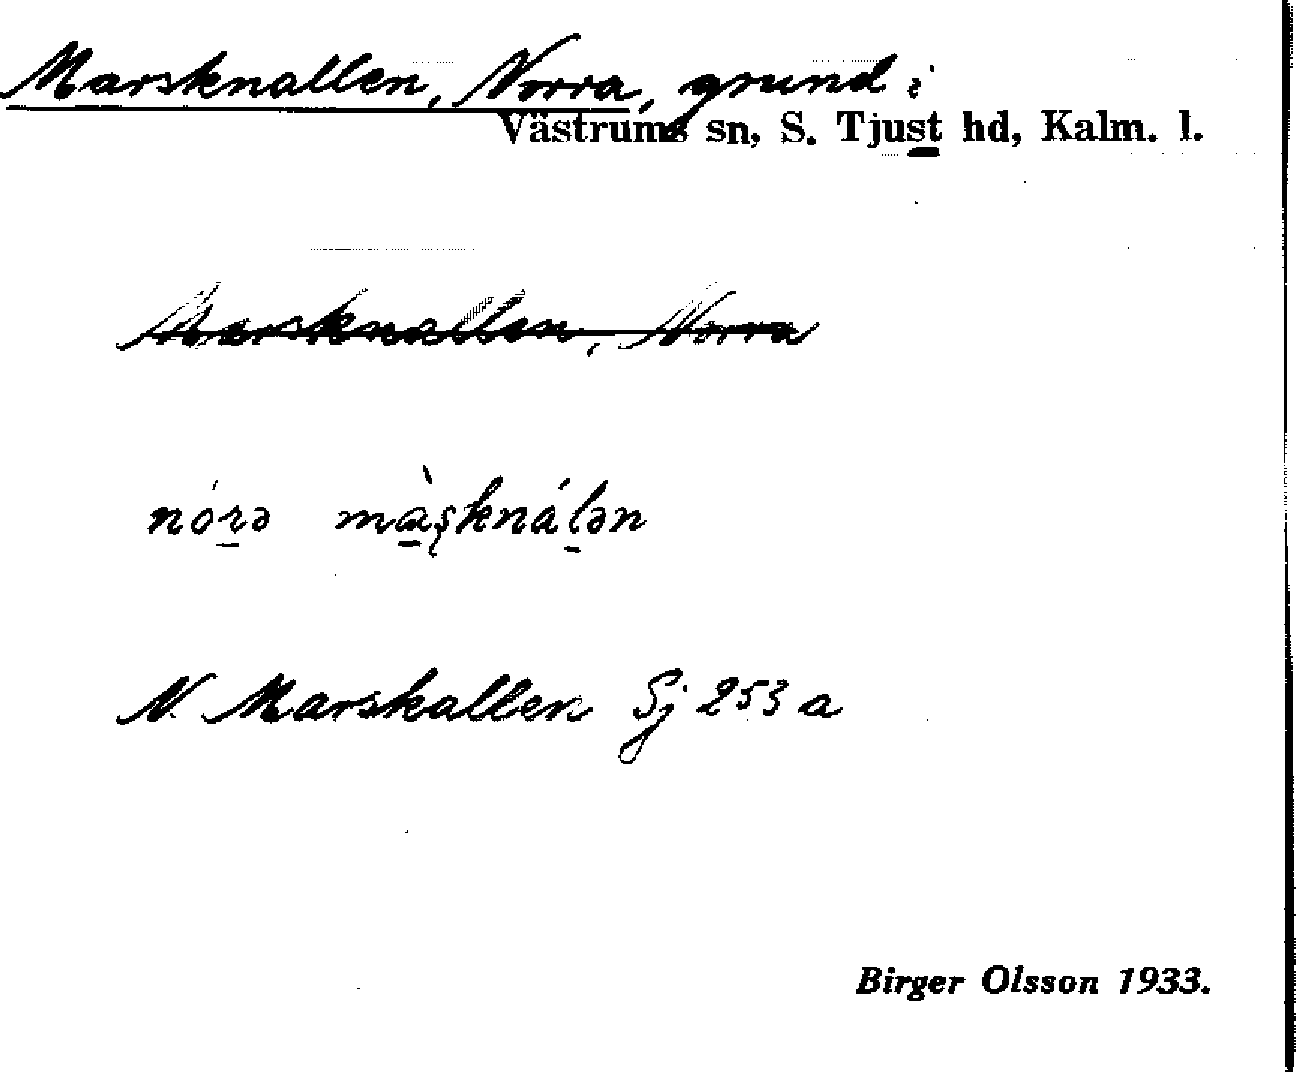 Marsknallen, Norra, grund i
Västrums sn, S. Tjust hd, Kalm. l.
Marsknallen, Norra
nórə màşknálən
N. Marskallen Sj 253 a
Birger Olsson 1933.